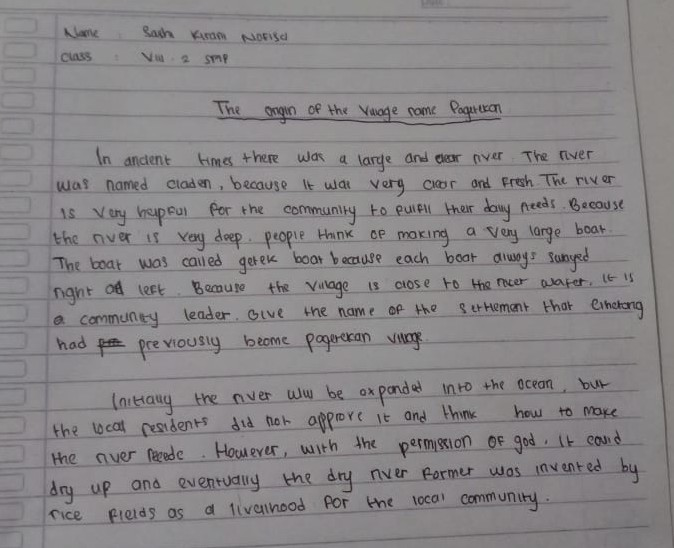 Name : Sacha Kirani Nafisa
Class : VIII . 2 SMP
The origin of the Village name Pagerekan
In ancient times there was a large and clear river. The river
was named claden, because it was very clear and fresh. The river
is very helpful for the community to pulfil their daily needs. Because
the river is very deep. people think of making a very large boat.
The boat was called getek boat because each boat always swayed
right left. Because the village is close to the river water, it is
a community leader. Give the name of the settlement that
had previously become pagerekan village.
Initially the river will be expanded into the ocean, but
the local residents did not approve it and think how to make
the river recede. However, with the permission of god, it could
dry up and eventually the dry river former was invented by
rice fields as a livelihood for the local community.